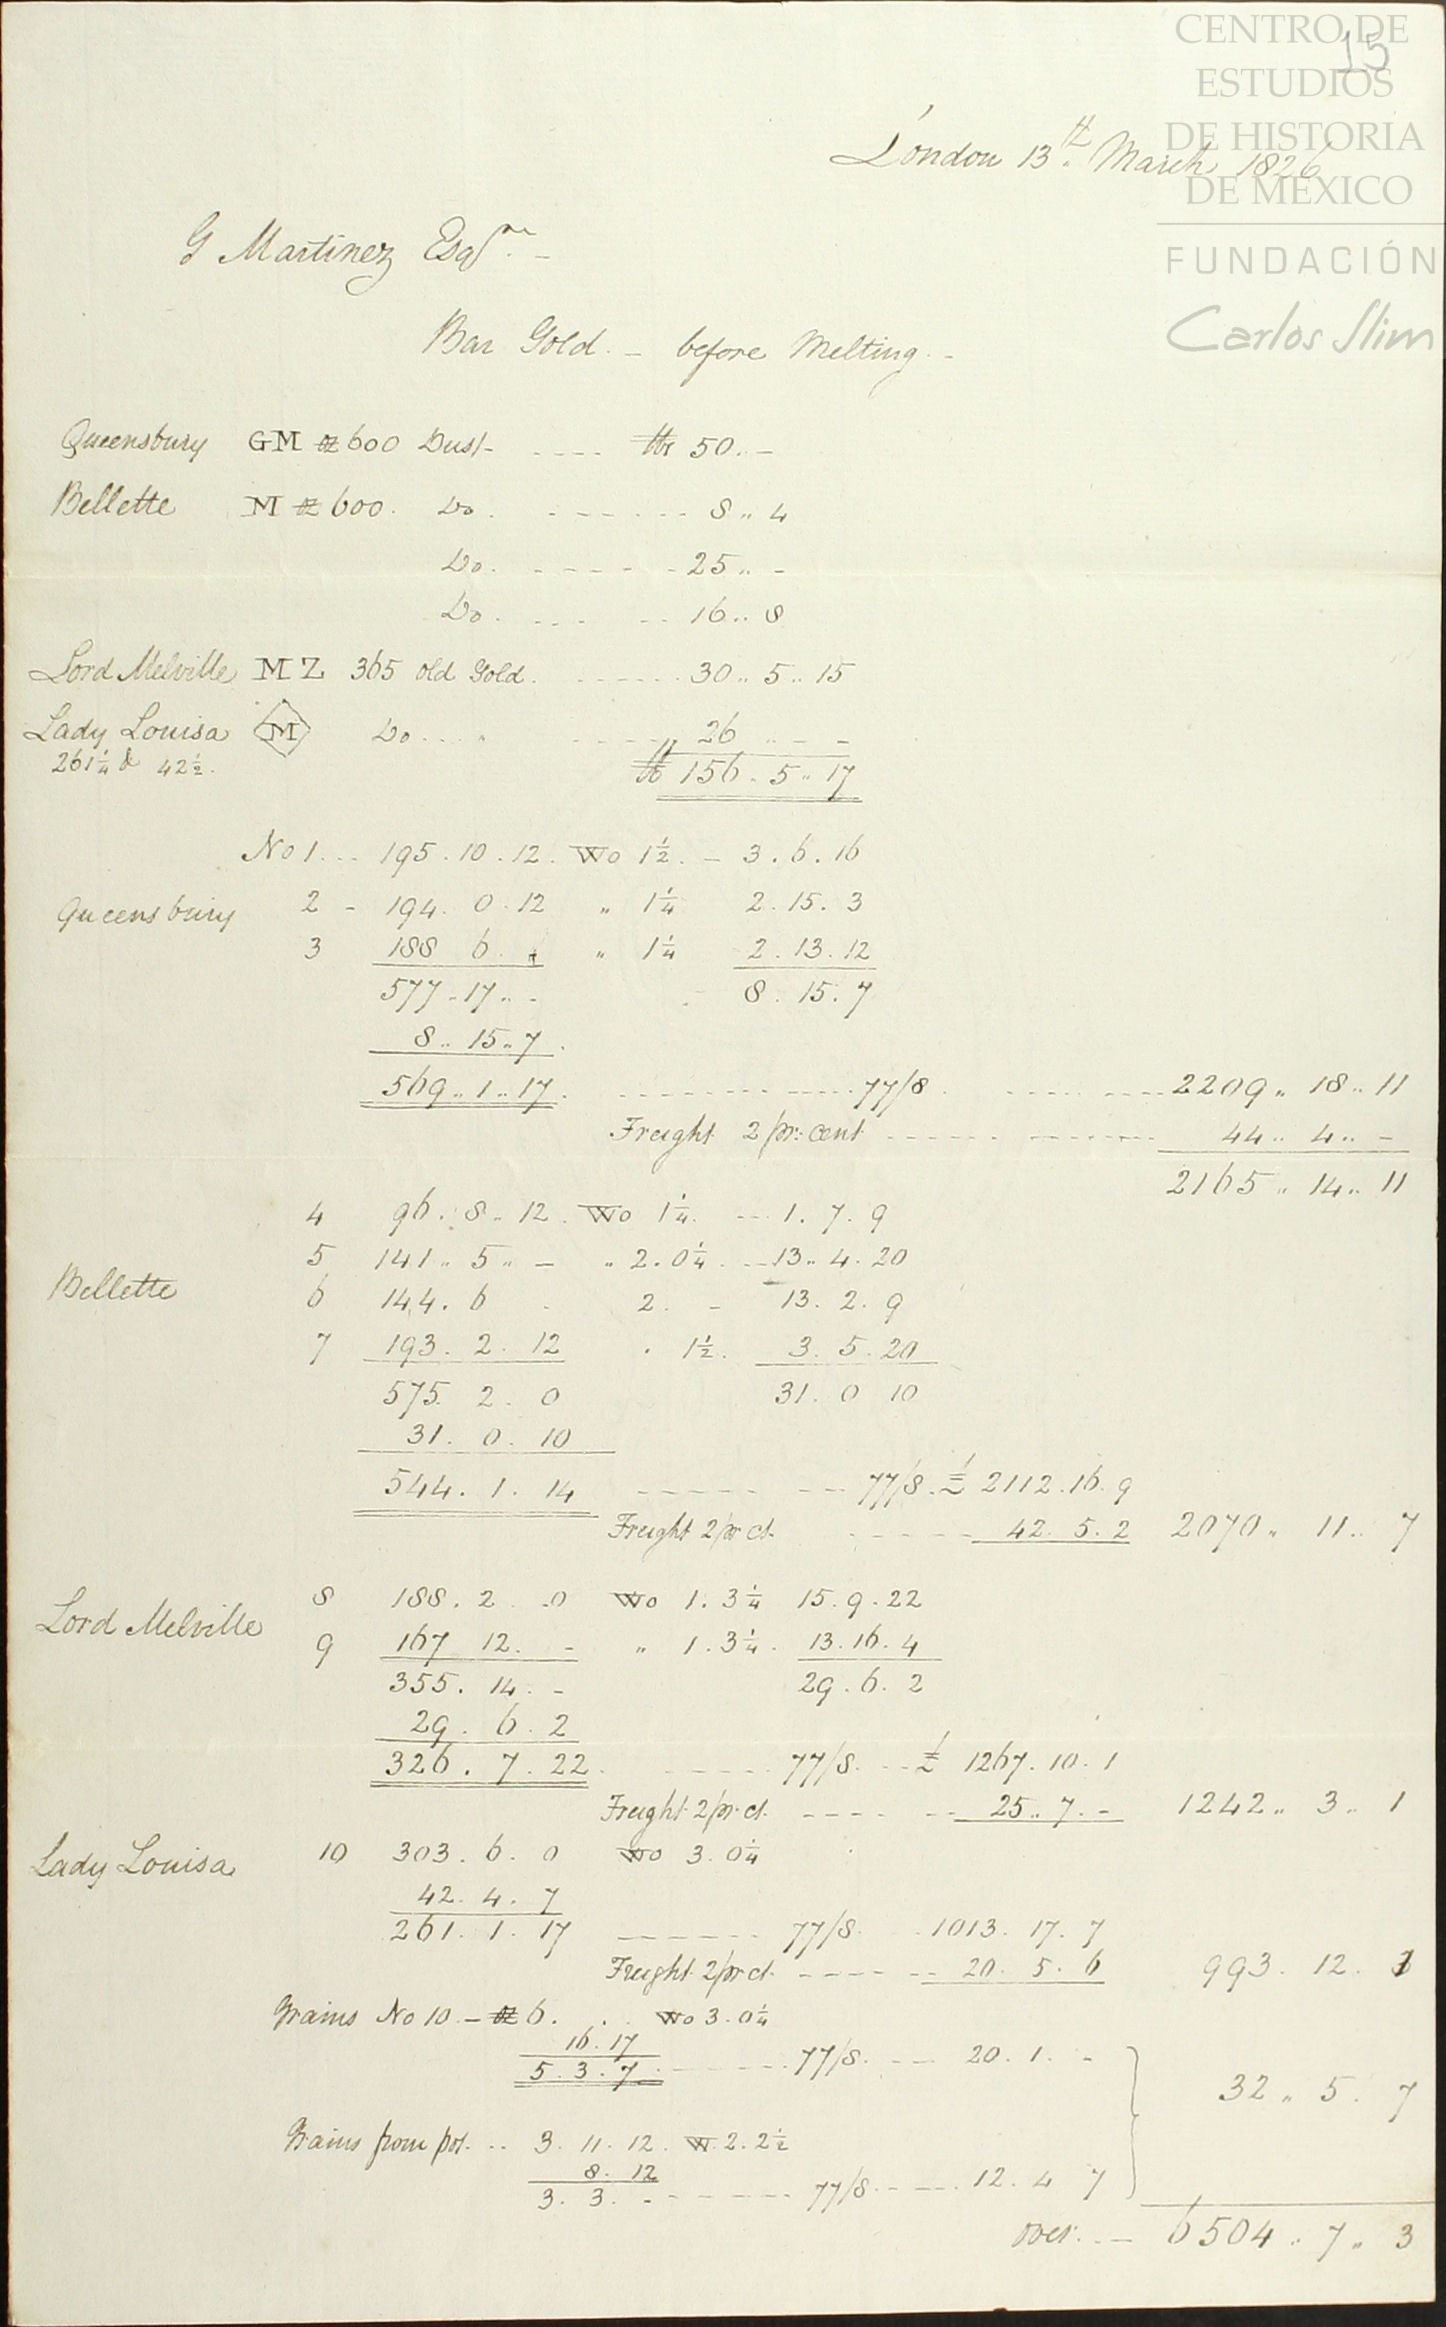 CENTRO DE
ESTUDIOS
DE HISTORIA
DE MÉXICO
FUNDACIÓN
Carlos Slim
15
London 13th March 1826
G Martinez Esqre. -
Bar Gold. - before Melting. -
Queensbury GM oz 600 Dust - .... lbs 50. -
Bellette M oz 600. Do. ...... 8 .. 4
Do. ..... 25 .. -
Do. ..... 16 .. 8
Lord Melville MZ 365 old Gold. ...... 30 .. 5 .. 15
Lady Louisa M Do .... 26 .. - -
261 1/4 & 42 1/2. lb 156 .. 5 .. 17
No 1 ... 195 . 10 . 12 . Wo 1 1/2 . - 3 . 6 . 16
Queensbury 2 - 194 . 0 . 12 " 1 1/4 2 . 15 . 3
3 188 6 . - " 1 1/4 2 . 13 . 12
577 . 17 .. - 8 . 15 . 7
8 .. 15 .. 7
569 .. 1 .. 17 . ........ 77/8 ........ 2209 .. 18 .. 11
Freight 2 pr: cent ........ 44 .. 4 .. -
2165 .. 14 .. 11
4 96 . 8 .. 12 . Wo 1 1/4 . ... 1 . 7 . 9
5 141 .. 5 .. - " 2 . 0 1/4 . - 13 .. 4 . 20
Bellette 6 144 . 6 . 2 . - 13 . 2 . 9
7 193 . 2 . 12 " 1 1/2 . 3 . 5 . 20
575 . 2 . 0 31 . 0 10
31 . 0 . 10
544 . 1 . 14 ........ 77/8 . £ 2112 . 16 . 9
Freight 2 pr ct. ..... 42 . 5 . 2 2070 .. 11 .. 7
8 188 . 2 . 0 Wo 1 . 3 1/4 15 . 9 . 22
Lord Melville 9 167 12 . - " 1 . 3 1/4 . 13 . 16 . 4
355 . 14 . - 29 . 6 . 2
29 . 6 . 2
326 . 7 . 22 . ...... 77/8 . .. £ 1267 . 10 . 1
Freight 2 pr ct. ...... 25 .. 7 . - 1242 .. 3 .. 1
Lady Louisa 10 303 . 6 . 0 Wo 3 . 0 1/4
42 . 4 . 7
261 . 1 . 17 ...... 77/8 . . 1013 . 17 . 7
Freight 2 pr ct. ...... 20 . 5 . 6 993 . 12 . 1
Grains No 10 - oz 6 . . . Wo 3 . 0 1/4
16 . 17
5 . 3 . 7 ...... 77/8 . ... 20 . 1 . -
32 .. 5 . 7
Grains from pot. .. 3 . 11 . 12 . W . 2 . 2 1/2
8 . 12
3 . 3 . - ...... 77/8 ..... 12 . 4 7
over . . - 6504 .. 7 .. 3